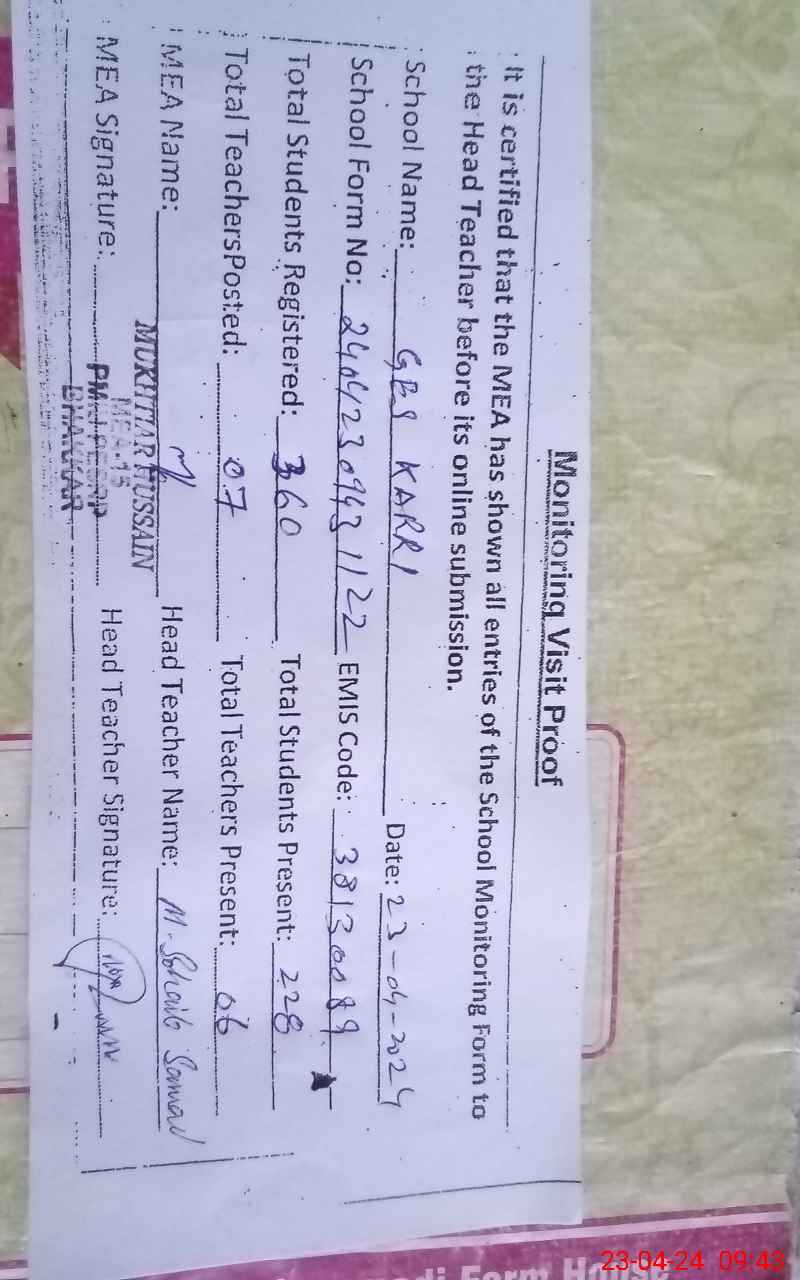 Monitoring Visit Proof
It is certified that the MEA has shown all entries of the School Monitoring Form to
the Head Teacher before its online submission.
School Name: GBS KARRI Date: 23-04-2024
School Form No: 24042309431122 EMIS Code: 38130089
Total Students Registered: 360 Total Students Present: 228
Total TeachersPosted: 07 Total Teachers Present: 06
MEA Name: MUKHTIAR HUSSAIN Head Teacher Name: M. Sohaib Samad
MEA-15
MEA Signature: Head Teacher Signature:
BHAKKAR
Form House
23-04-24 09:43